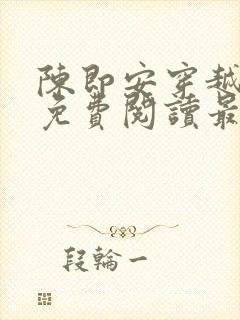 陳即安穿越
免費閱讀最
段輪一